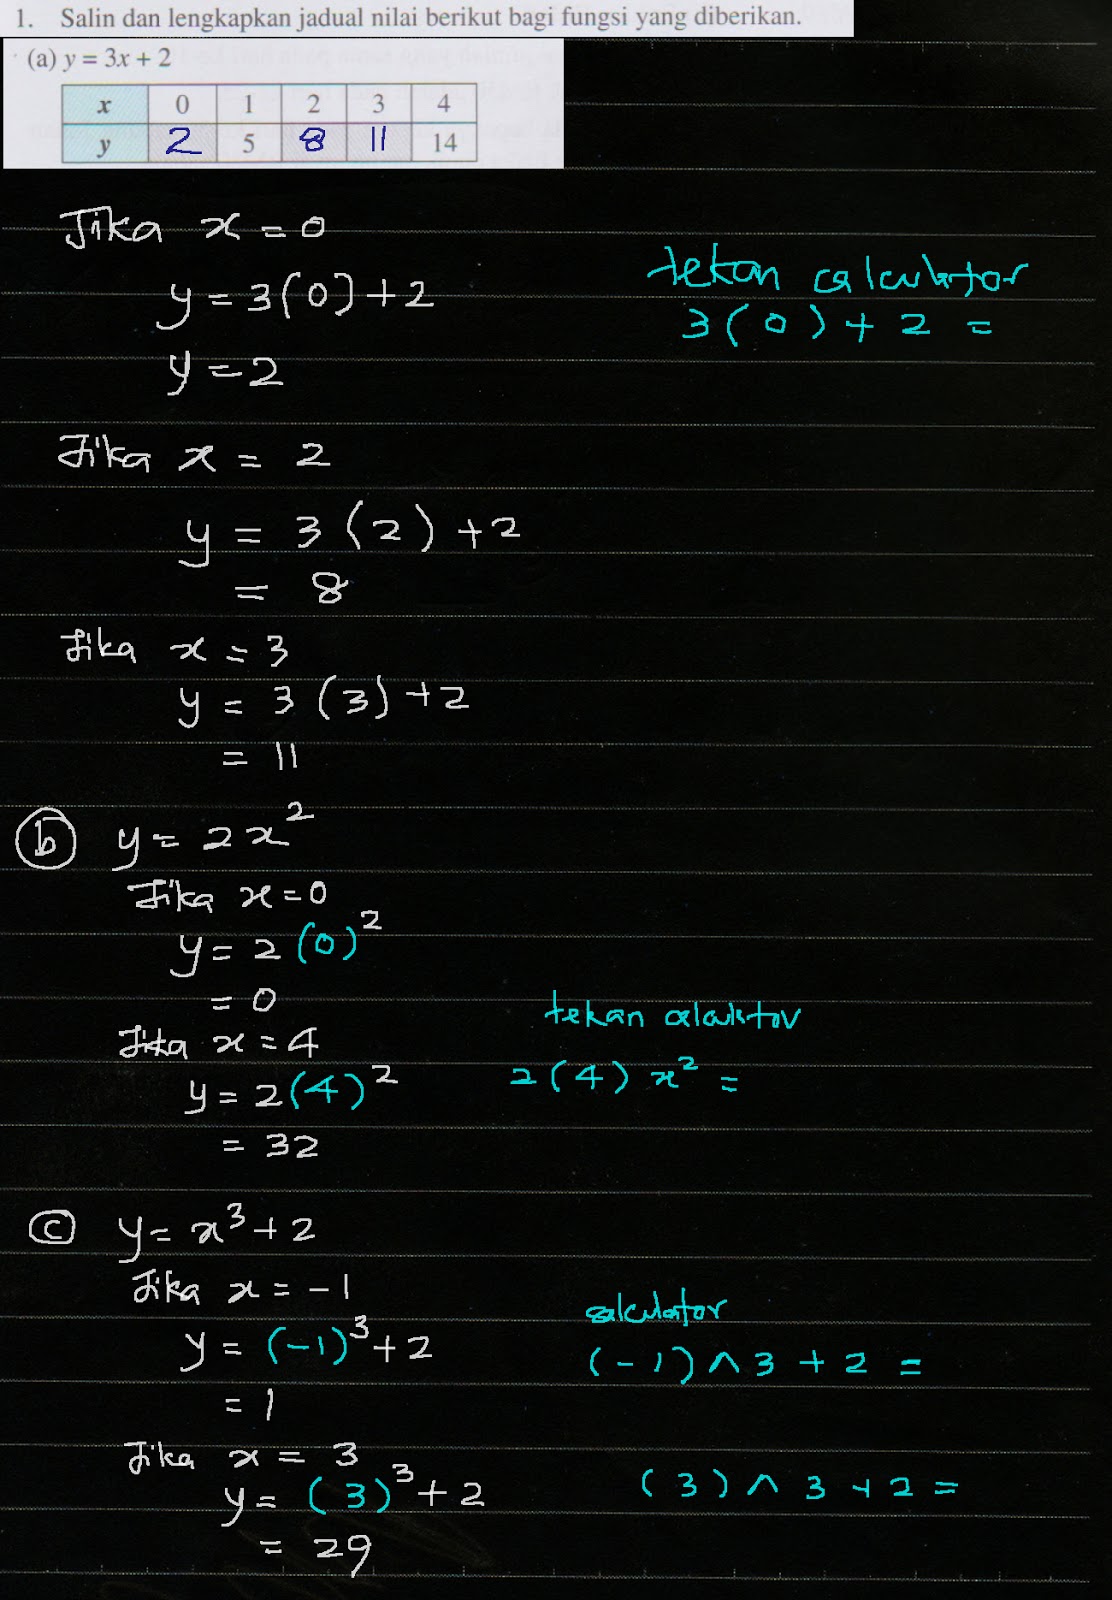 1. Salin dan lengkapkan jadual nilai berikut bagi fungsi yang diberikan.
(a) y = 3x + 2
x 0 1 2 3 4
y 2 5 8 11 14
Jika x = 0
y = 3(0) + 2
y = 2
tekan calculator
3(0) + 2 =
Jika x = 2
y = 3(2) + 2
= 8
Jika x = 3
y = 3(3) + 2
= 11
(b) y = 2x²
Jika x = 0
y = 2(0)²
= 0
Jika x = 4
y = 2(4)²
= 32
tekan calculator
2(4) x² =
(c) y = x³ + 2
Jika x = -1
y = (-1)³ + 2
= 1
calculator
(-1) ^ 3 + 2 =
Jika x = 3
y = (3)³ + 2
= 29
(3) ^ 3 + 2 =